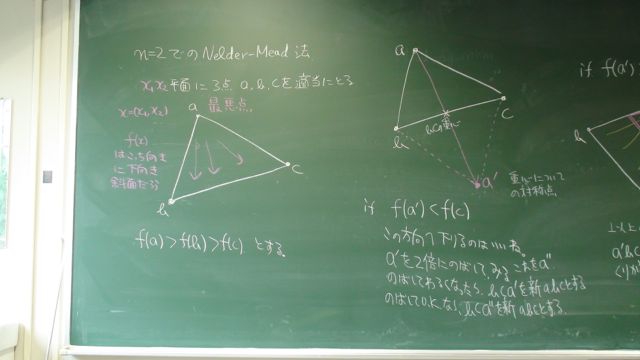 n=2でのNelder-Mead法
x₁x₂平面に3点 a, b, cを適当にとる
x=(x₁,x₂)
a 最悪点
f(x)
はこっち向き
に下向き
斜面だろう
c
b
f(a)>f(b)>f(c) とする。
a
c
b
bcの重心
a'
重心について
の対称点
if f(a')<f(c)
この方向へ下りるのはいいね。
a'を2倍にのばしてみる これをa''
のばしてわるくなったら、bca'を新abcとする
bca''を新abcとする
if f(a')
b
a'bc